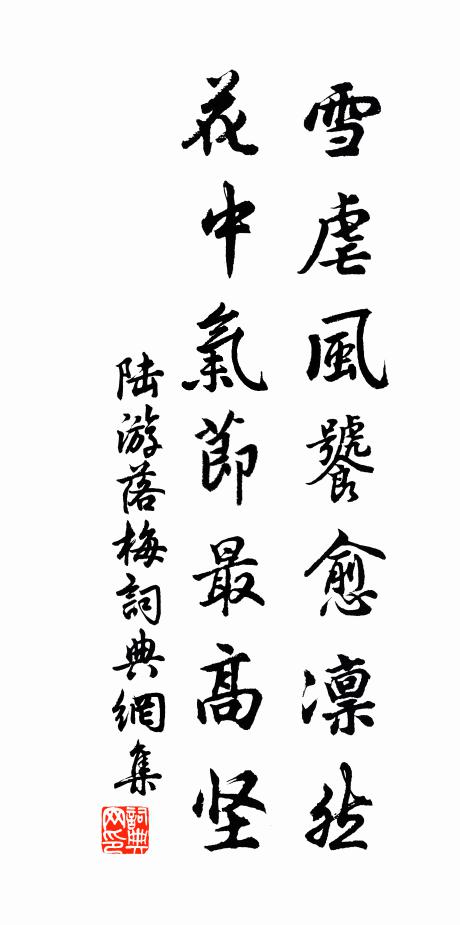 雪虐風饕愈凛然
花中氣節最高坚
陆游落梅詞典網集
詞典網印